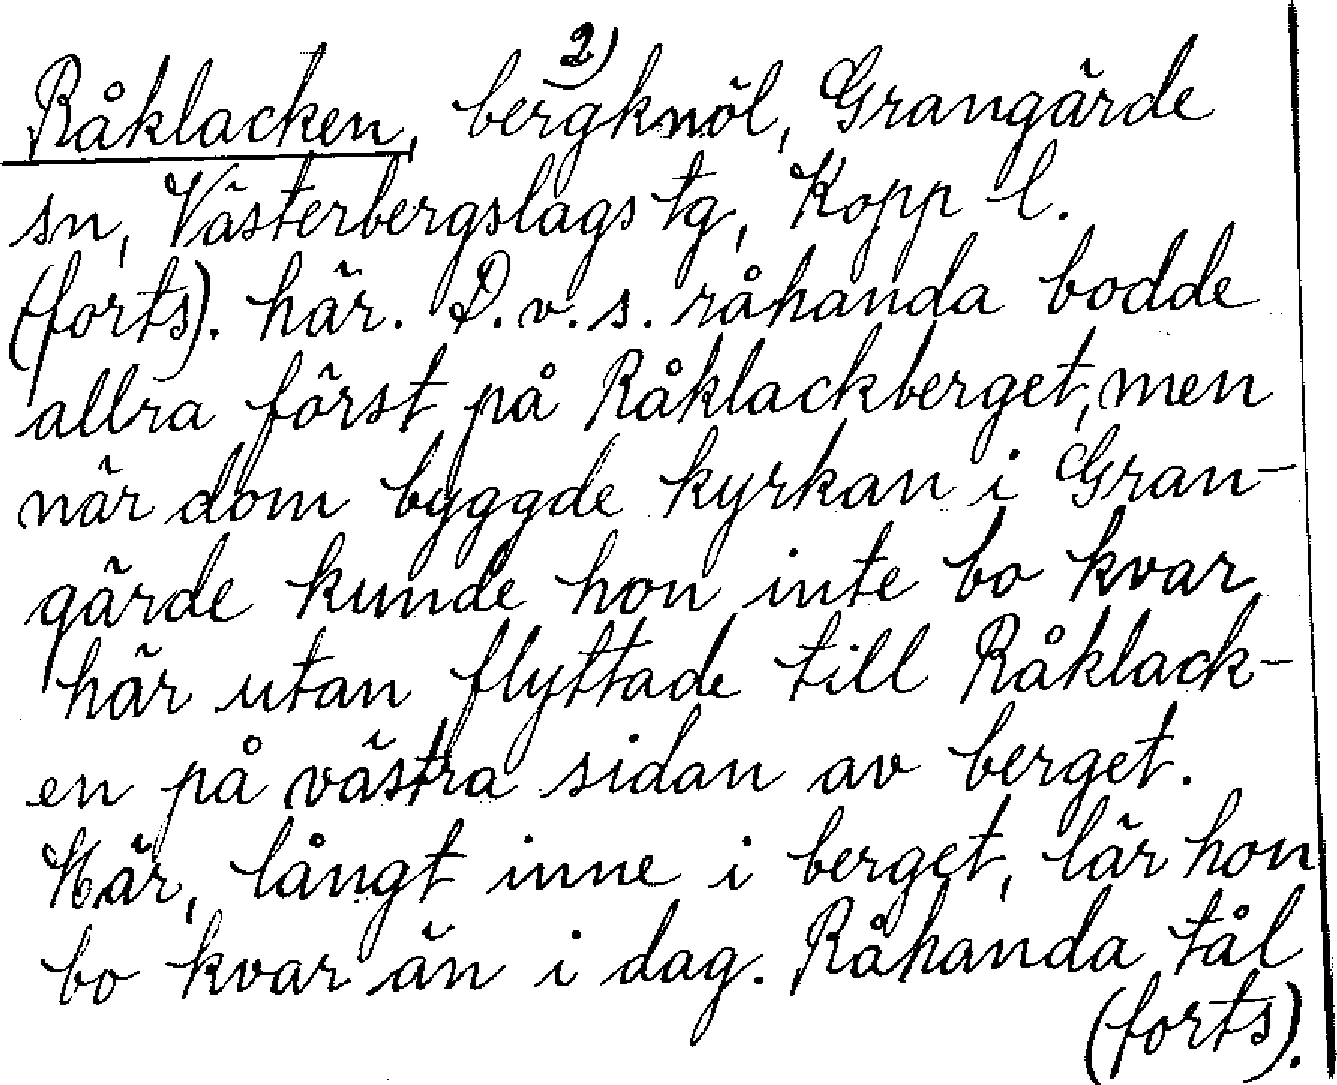 2)
Råklacken, bergknöl, Grangärde
sn, Västerbergslags tg, Kopp l.
(forts). här. D.v.s. råhanda bodde
allra först på Råklackberget, men
när dom byggde kyrkan i Gran-
gärde kunde hon inte bo kvar
här utan flyttade till Råklack-
en på västra sidan av berget.
Här, långt inne i berget, lär hon
bo kvar än i dag. Råhanda tål
(forts).